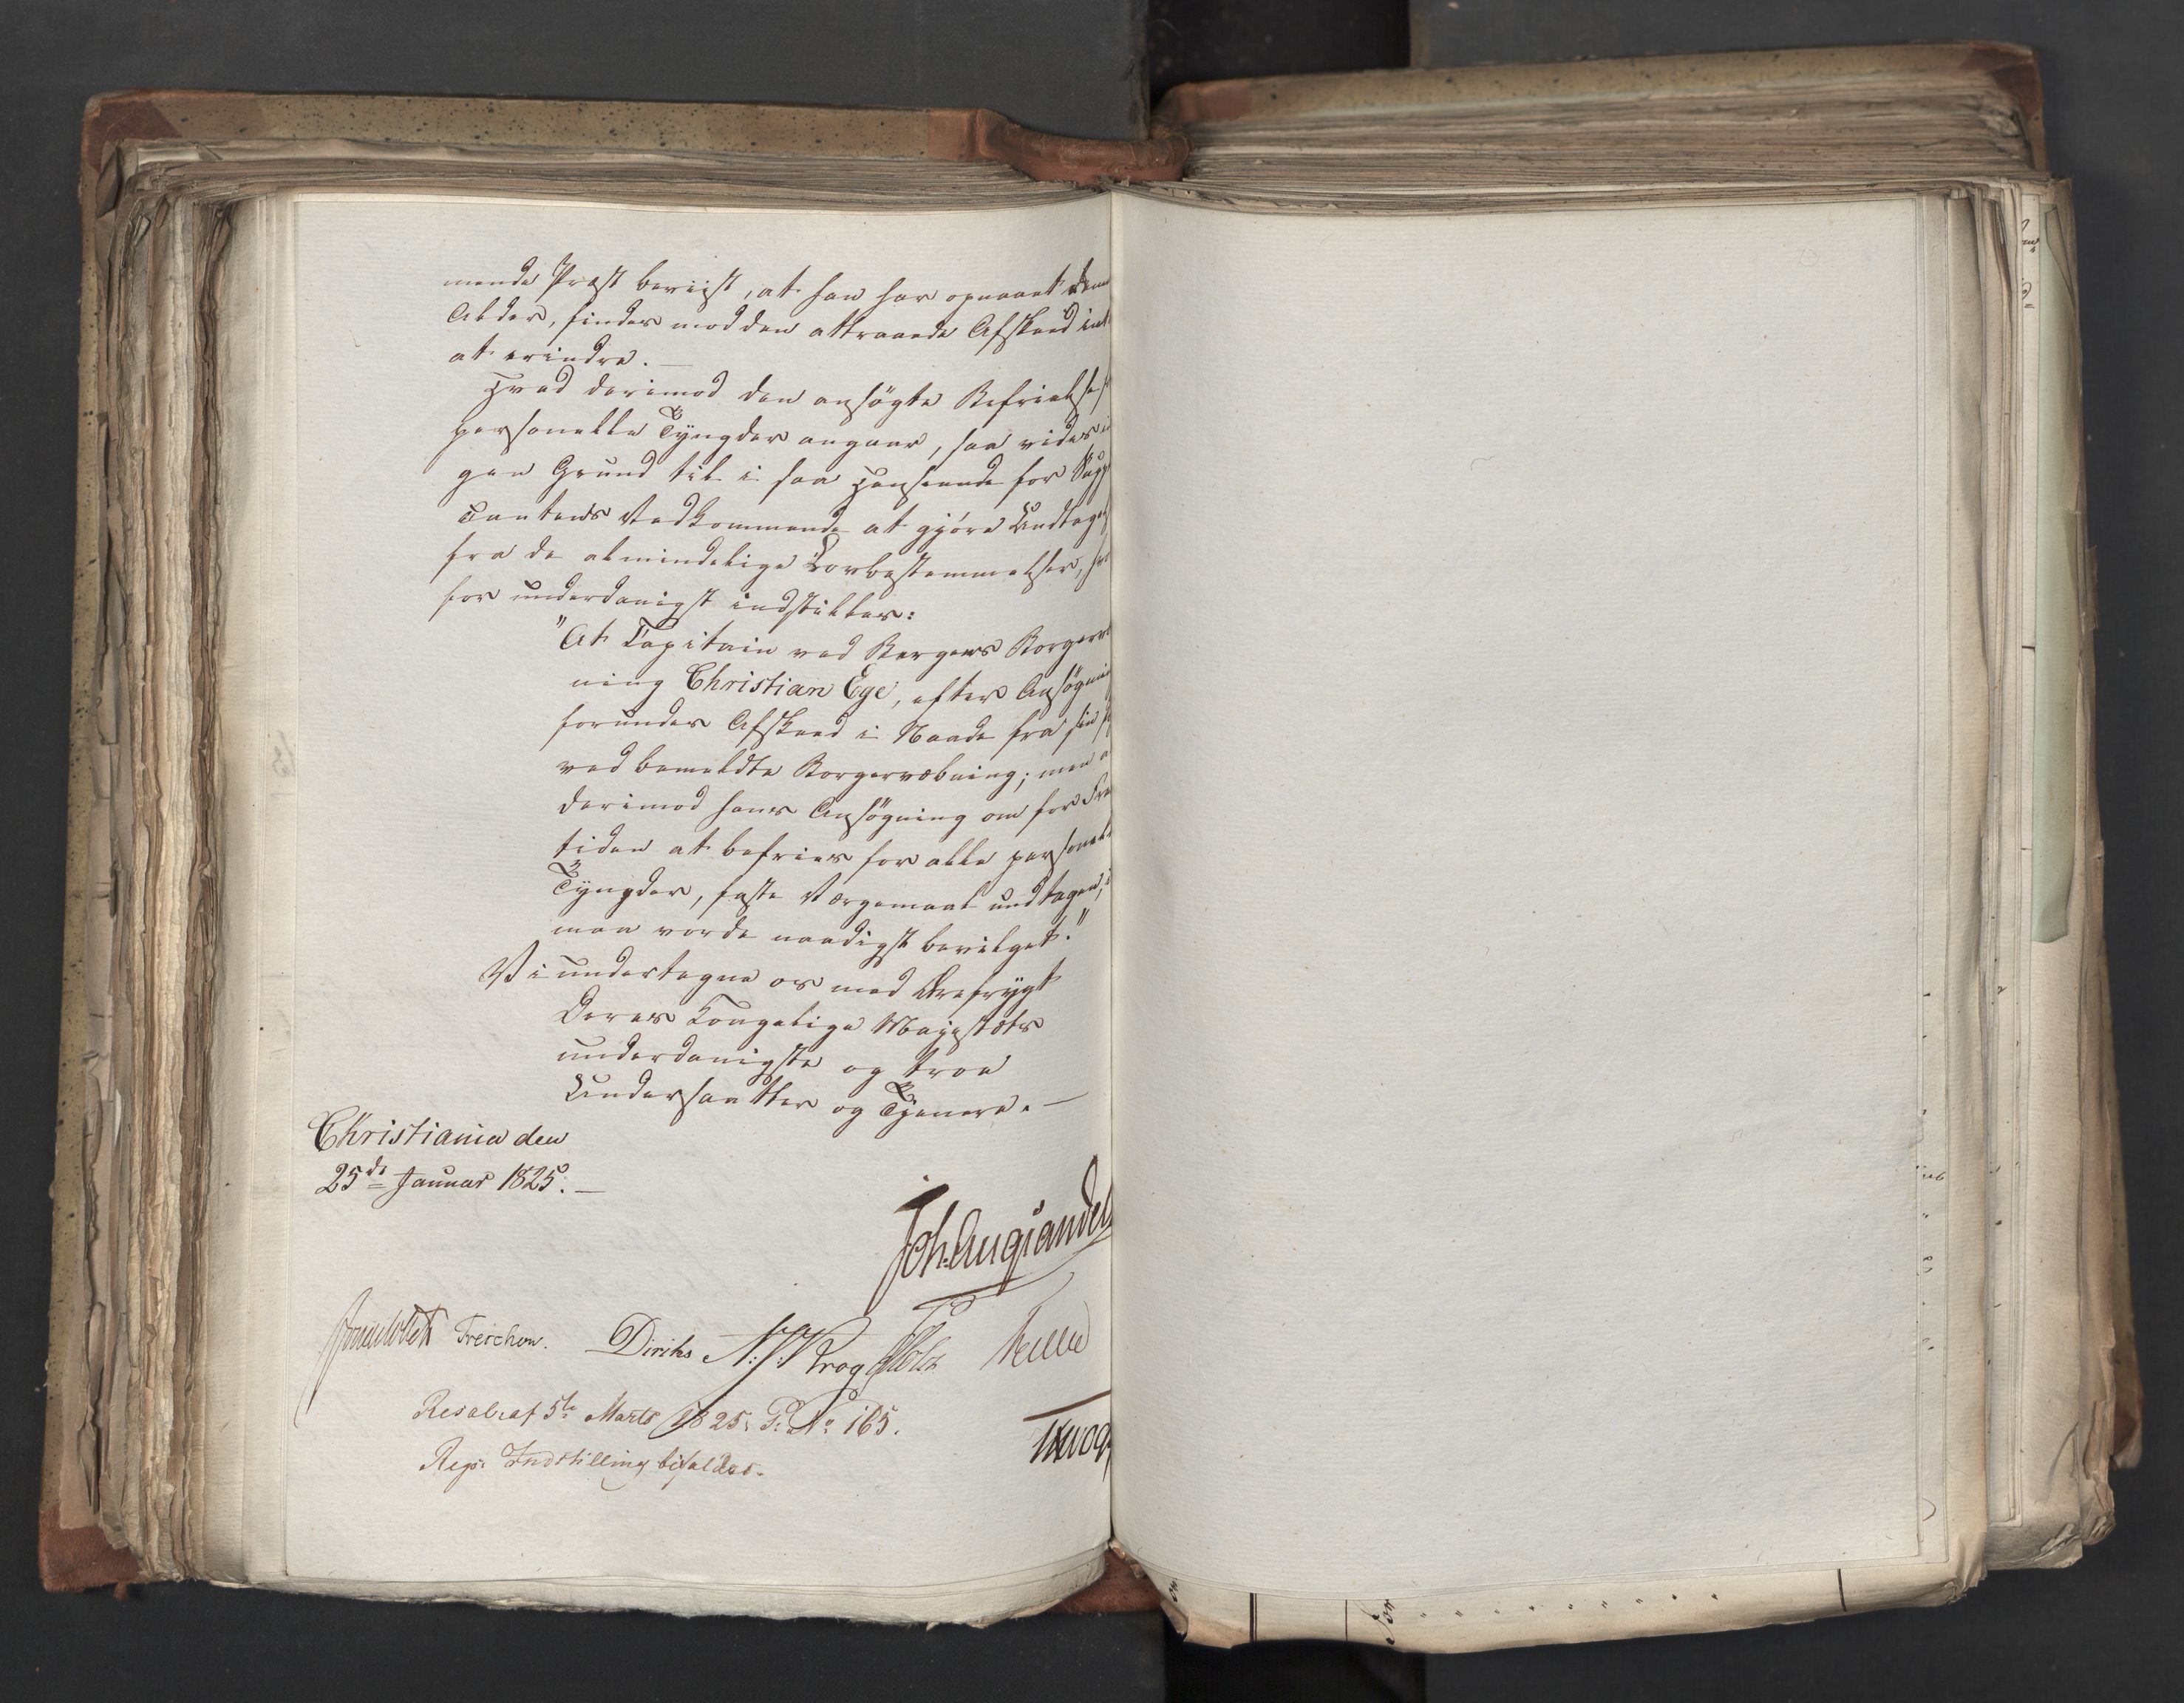 mende Præst beviist, at han har opnaaet denne
Alder, findes mod den attraaede Afskeed intet
at erindre. —
Hvad derimod den ansögte Befrielse f
personelle Tyngder angaaer, saa vides in
gen Grund til i saa Henseende for Suppl
cantens Vedkommende at gjöre Undtagel
fra de almindelige Lovbestemmelser, hvor
for underdanigst indstilles:
"At Capitain ved Bergens Borgervæ
ning Christian Ege, efter Ansögning
forundes Afskeed i Naade fra sin
ved bemeldte Borgervæbning; men a
derimod hans Ansögning om for Frem
tiden at befries for alle personelle
Tyngder, faste Værgemaal undtagen, i
maa vorde naadigst bevilget."
Vi undertegne os med Ærefrygt
Deres Kongelige Majestæts
underdanigste og troe
Undersaatter og Tjenere. —
Christiania den
25de Januar 1825. —
Joh. Aug: Sandels
Sommerhielm Treschow. Diriks N: J: Krog Collett Fasting
Resol: af 5te Marts 1825, P. No 165.
Regs: Indstilling bifaldes.